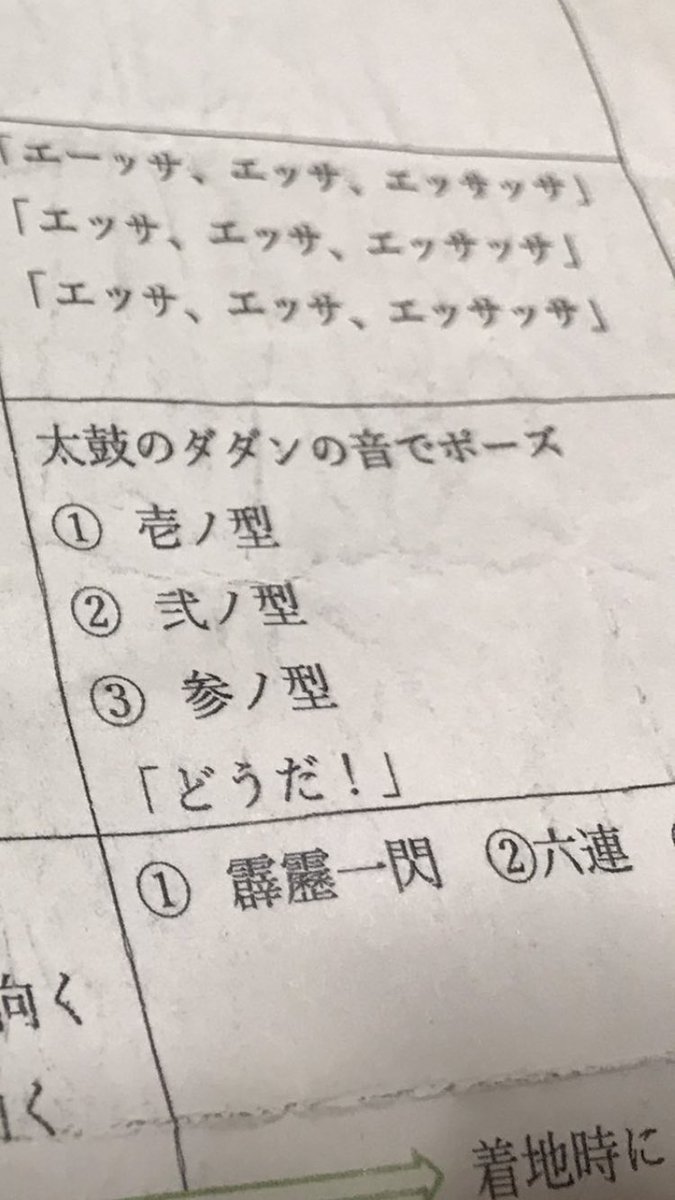 「エーッサ、エッサ、エッサッサ」
「エッサ、エッサ、エッサッサ」
「エッサ、エッサ、エッサッサ」
太鼓のダダンの音でポーズ
① 壱ノ型
② 弐ノ型
③ 参ノ型
「どうだ！」
① 霹靂一閃 ②六連
向く
く
着地時に